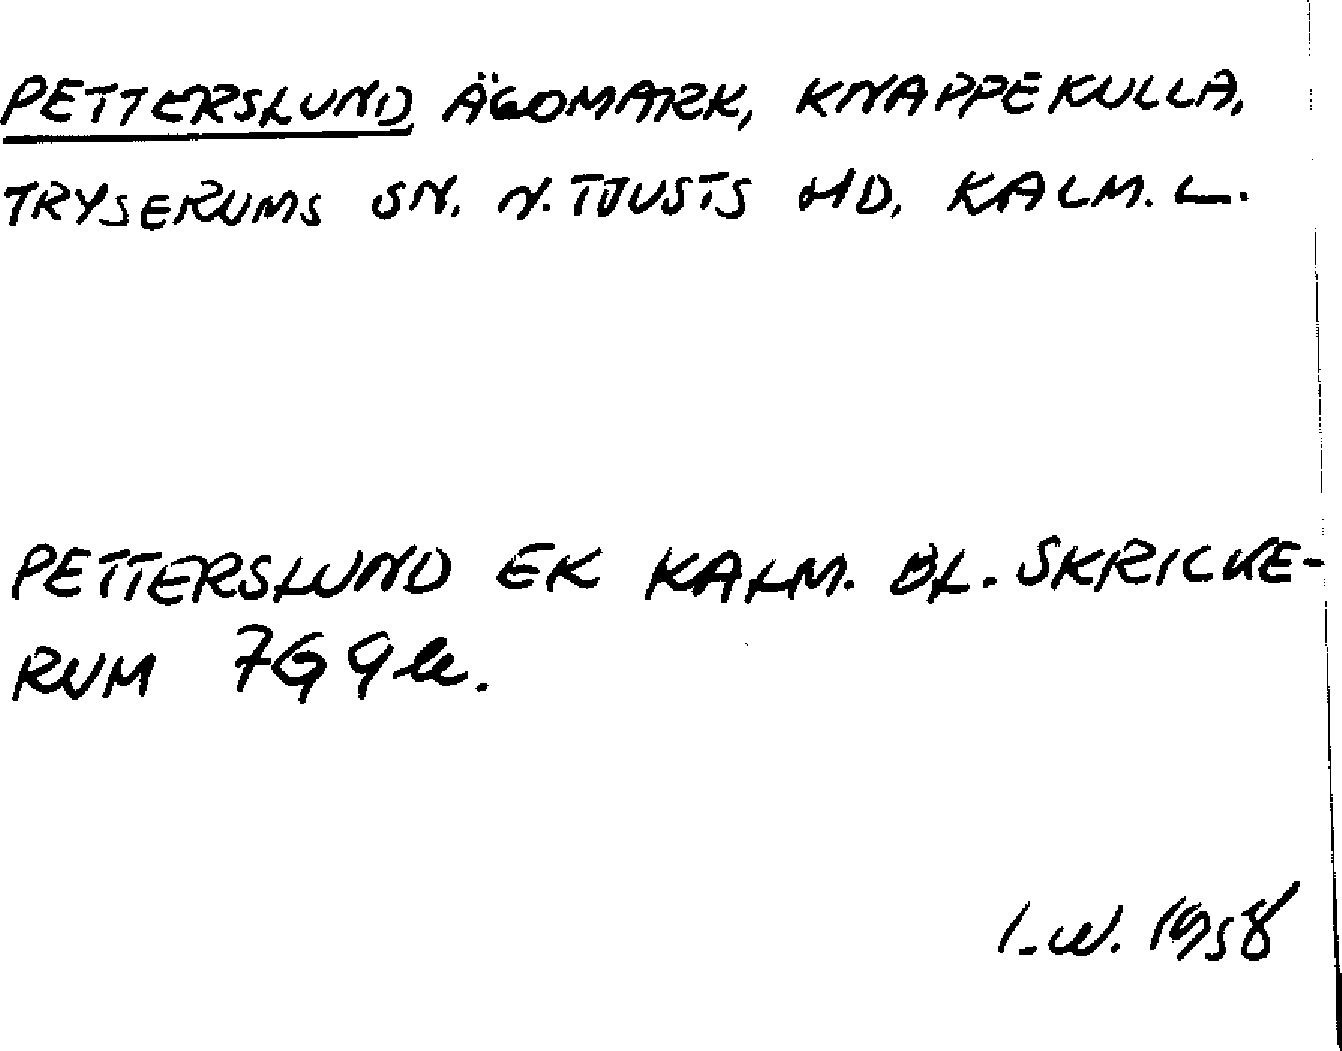 PETTERSLUND ÄGOMARK, KNAPPEKULLA,
TRYSERUMS SN. N. TJUSTS HD. KALM. L.
PETTERSLUND EK KALM. BL. SKRICKE-
RUM 7G 9
I.W. 1958